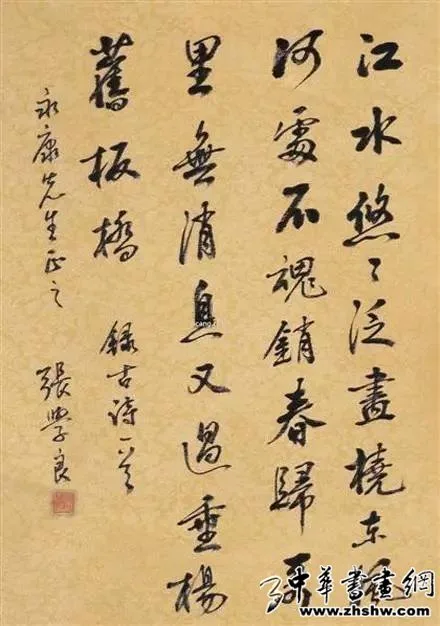 江水悠〻泛畫橈東風
何處不魂銷春歸萬
里無消息又過垂楊
舊板橋 錄古詩一首
永康先生正之 張學良
中華書畫網
www.zhshw.com